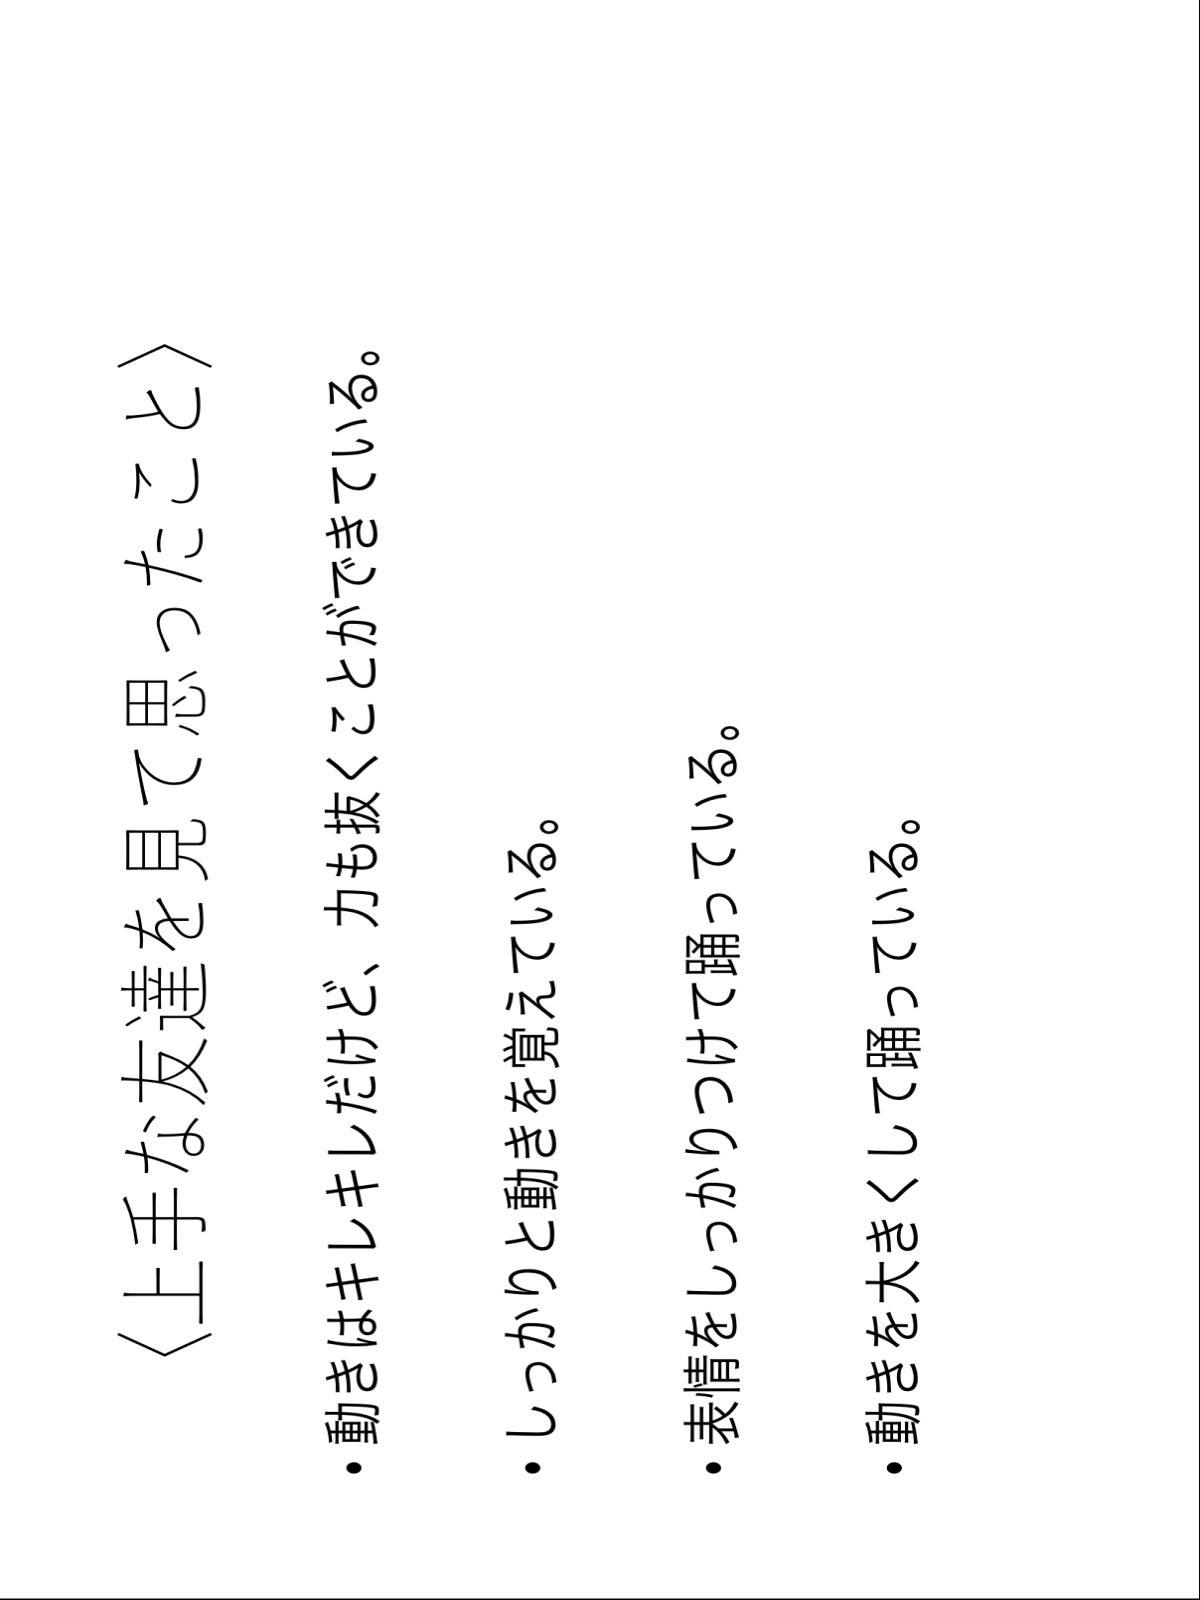 〈上手な友達を見て思ったこと〉
・動きはキレキレだけど、力も抜くことができている。
・しっかりと動きを覚えている。
・表情をしっかりつけて踊っている。
・動きを大きくして踊っている。